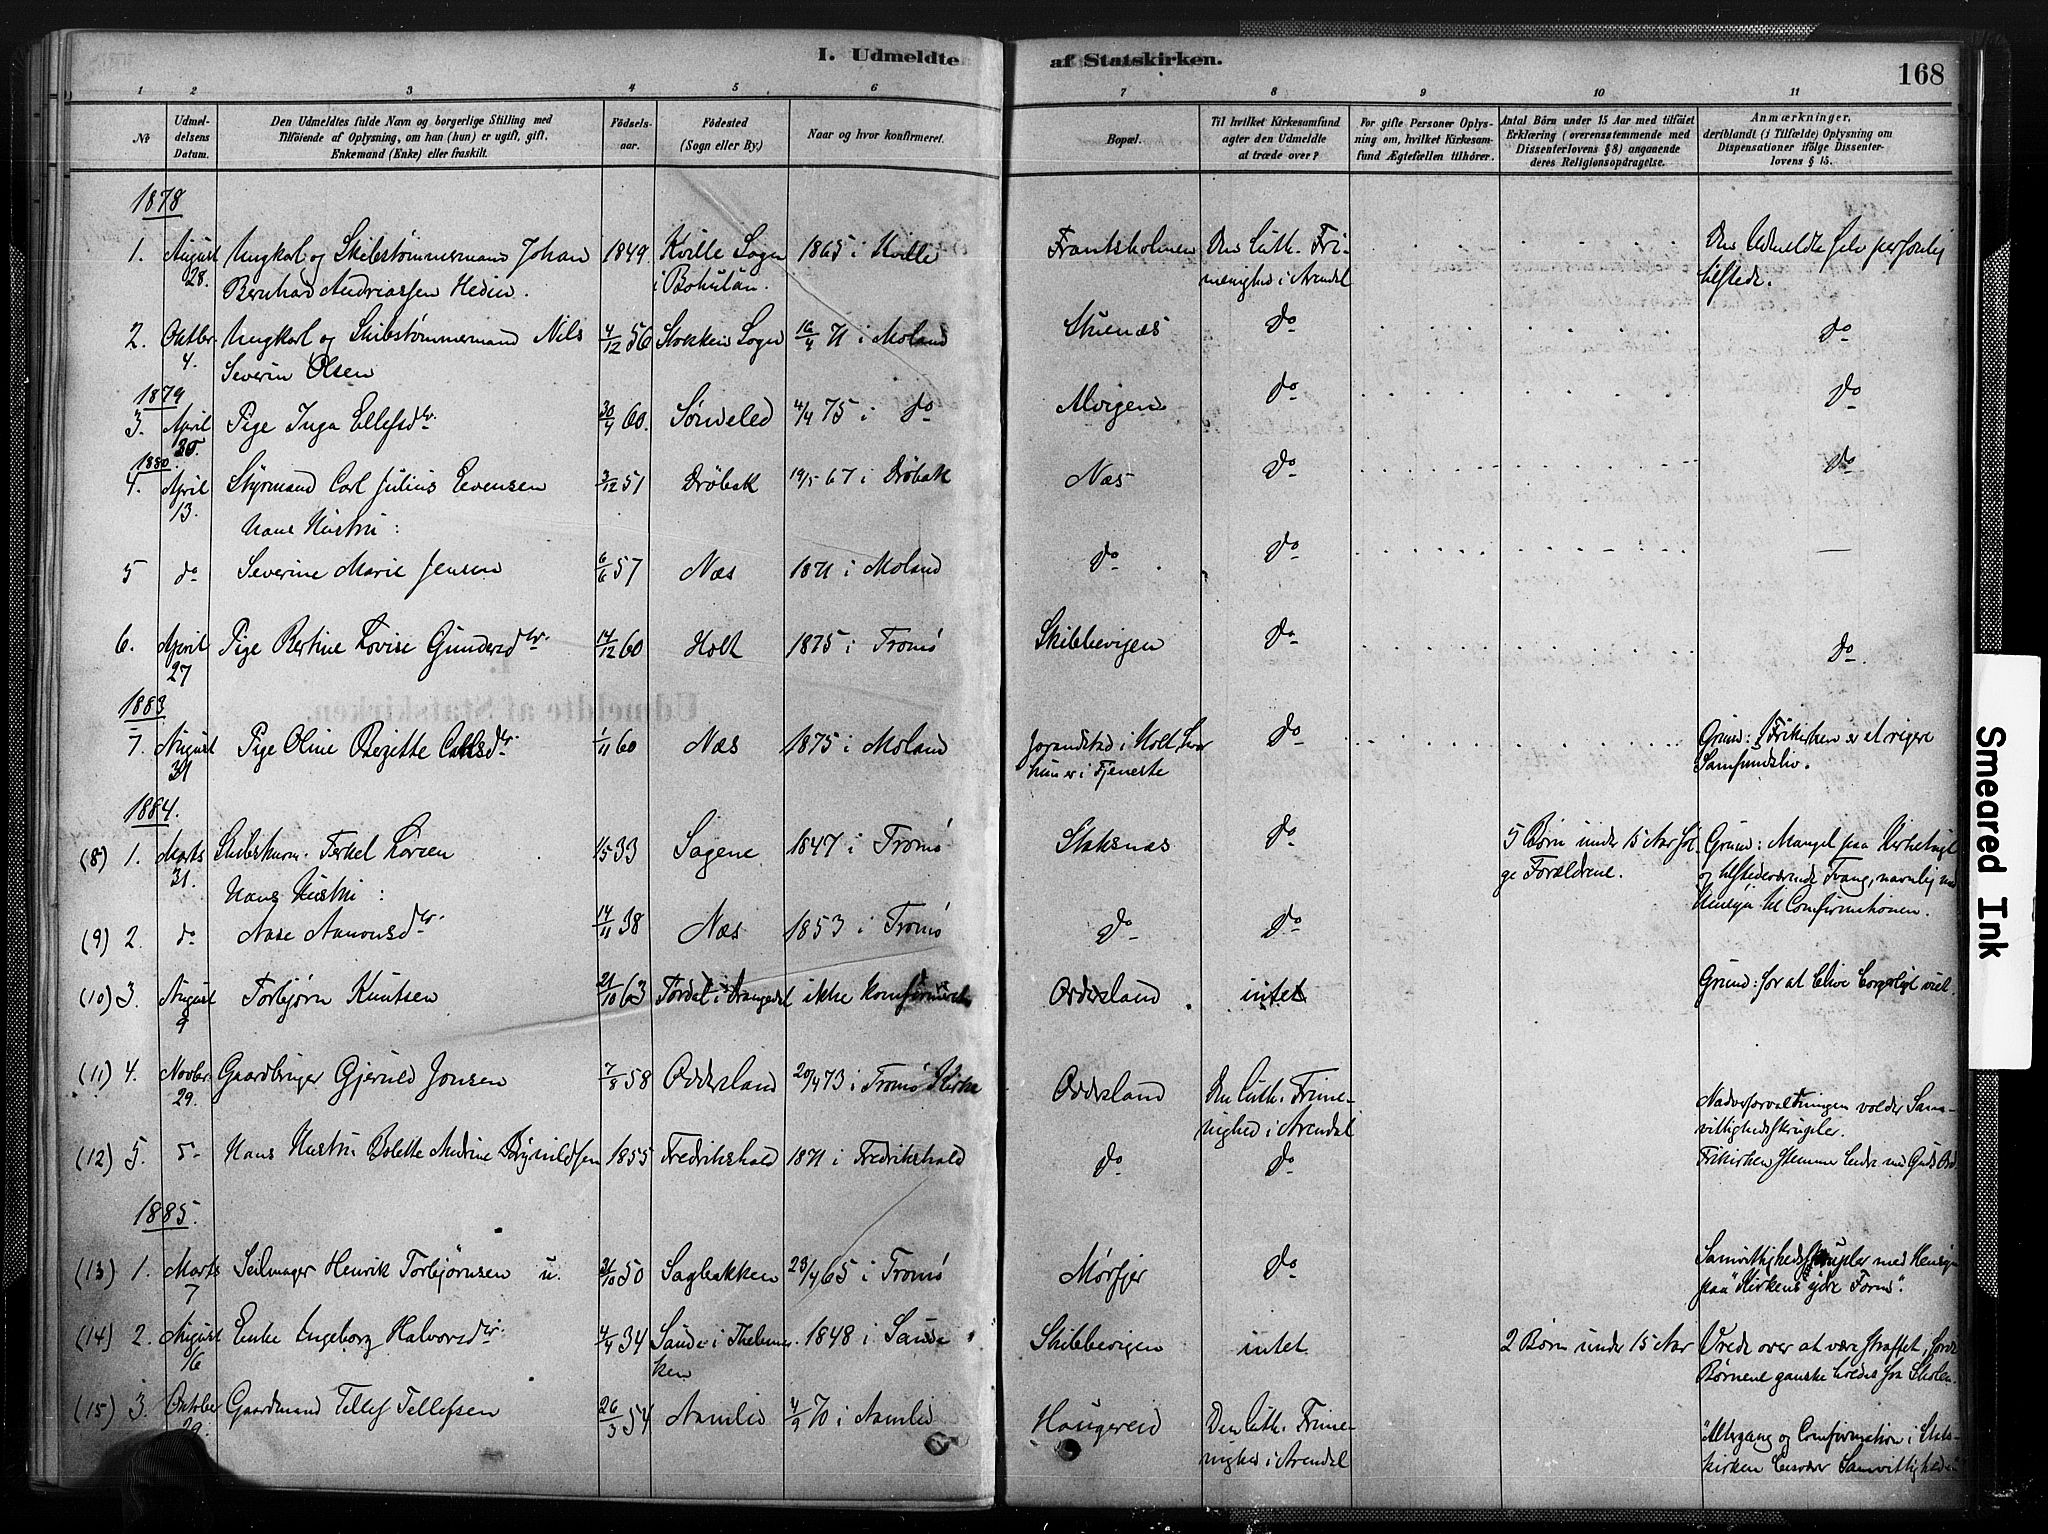 I. Udmeldte af Statskirken.
168
1 2 3 4 5 6 7 8 9 10 11
No
Udmeldelsens Datum.
Den Udmeldtes fulde Navn og borgerlige Stilling med
Tilføiende af Oplysning, om han (hun) er ugift, gift,
Enkemand (Enke) eller fraskilt.
Fødselsaar.
Fødested
(Sogn eller By.)
Naar og hvor konfirmeret.
Bopæl.
Til hvilket Kirkesamfund
agter den Udmeldte
at træde over?
For gifte Personer Oplysning
om, hvilket Kirkesamfund
Ægtefællen tilhører.
Antal Børn under 15 Aar med tilføiet
Erklæring (overensstemmende med
Dissenterlovens § 8) angaaende
deres Religionsopdragelse.
Anmærkninger,
deriblandt (i Tilfælde) Oplysning om
Dispensationer ifølge Dissenterlovens
§ 15.
1878
1. August 28. Ungkarl og Skibstømmermand Johan 1849. Kville Sogn 1865 i Kville Frantsholmen Den luth. Fri- Den Udmeldte selv personlig
Bernhard Andriassen Hedin. i Bohulän. menighed i Arendal tilstede.
2. Oktber 4. Ungkarl og Skibstømmermand Nils 4/12 56 Stokken Sogn 16/4 71 i Moland Stuenæs do do
Severin Olsen
1879
3. April 20. Pige Inga Ellefsdtr 30/4 60. Søndeled 4/4 75 i do Alvigen do do
1880.
4. April 13. Styrmand Carl Julius Evensen 3/12 51 Drøbak 19/5 67 i Drøbak Næs do do
Hans Hustru:
5 do Severine Marie Jensen 6/6 57 Næs 1871 i Moland do do —
6. April 27 Pige Bertine Lovise Gundersdtr. 14/12 60 Holt 1875 i Tromø Skibbevigen do do.
1883.
7. August 31 Pige Oline Regitte Carlsdtr. 1/11 60 Næs 1875 i Moland Jorandstad i Holt, hvor do Grund: I Frikirken er et rigere
hun er i Tjeneste Samfundsliv.
1884.
(8) 1. Marts 31. Skibstøm. Terkel Larsen 1/5 33 Sagene 1847 i Tromø Staksnæs do 5 Børn under 15 Aar føl- Grund: Mangel paa Kirketugt
ge Forældrene. og tilstedeværende Tvang, navnlig med
Hans Hustru: Hensyn til Confirmationen.
(9) 2. do Aase Aanonsdtr. 14/11 38 Næs 1853 i Tromø do do
(10) 3. August 9 Torbjørn Knutsen 21/10 63 Tørdal i Drangedal ikke konfirmeret Oddersland intet Grund: for at blive borgerligt viet.
(11) 4. Novbr. 29. Gaardbruger Gjeruld Jonsen 7/8 58 Oddersland 20/4 73 i Tromø Kirke Oddersland Den luth. Frime- Nadverforvaltningen volder Sam-
nighed i Arendal vittighedsskrupler.
(12) 5. do Hans Hustru Bolette Andrine Bøynildsen 1855 Fredrikshald 1871 i Fredrikshald do do Frikirken stemmer bedre med Guds Ord
1885.
(13) 1. Marts 7 Seilmager Henrik Torbjørnsen u. 21/10 50 Sagbakken 23/4 65 i Tromø Mørfjer do Samvittighedsskrupler med Hensyn
paa "Kirkens ydre Form".
(14) 2. August 6 Enke Ingeborg Halvorsdtr. 4/4 34 Sande i Thelemar- 1848 i Sande Skibbevigen intet 2 Børn under 15 Aar Vrede over at være straffet, fordi
ken Børnene ganske holdes fra Skolen.
(15) 3. Oktober 29. Gaardmand Tellef Tellefsen 26/3 54 Aamlid 4/9 70 i Aamlid Haugereid Den luth. Frime- "Altergang og Confirmation i Stats-
nighed i Arendal kirken besværer Samvittigheden"
Smeared Ink